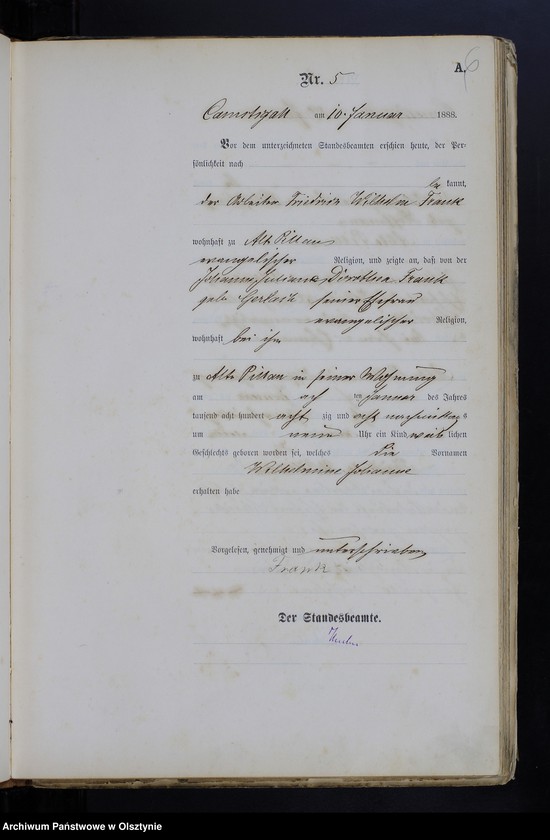 A.
6
Nr. 5
Camstigall am 10. Januar 1888.
Vor dem unterzeichneten Standesbeamten erschien heute, der Per-
sönlichkeit nach
be kannt,
der Arbeiter Friedrich Wilhelm Frank
wohnhaft zu Alt Pillau
evangelischer Religion, und zeigte an, daß von der
Johanne Juliane Dorothea Frank
geb. Gerlach seiner Ehefrau
evangelischer Religion,
wohnhaft bei ihm
zu Alt Pillau in seiner Wohnung
am ach ten Januar des Jahres
tausend acht hundert acht zig und acht vormittags
um neun Uhr ein Kind weib lichen
Geschlechts geboren worden sei, welches die Vornamen
Wilhelmine Johanne
erhalten habe
Vorgelesen, genehmigt und unterschrieben
Frank
Der Standesbeamte.
Archiwum Państwowe w Olsztynie